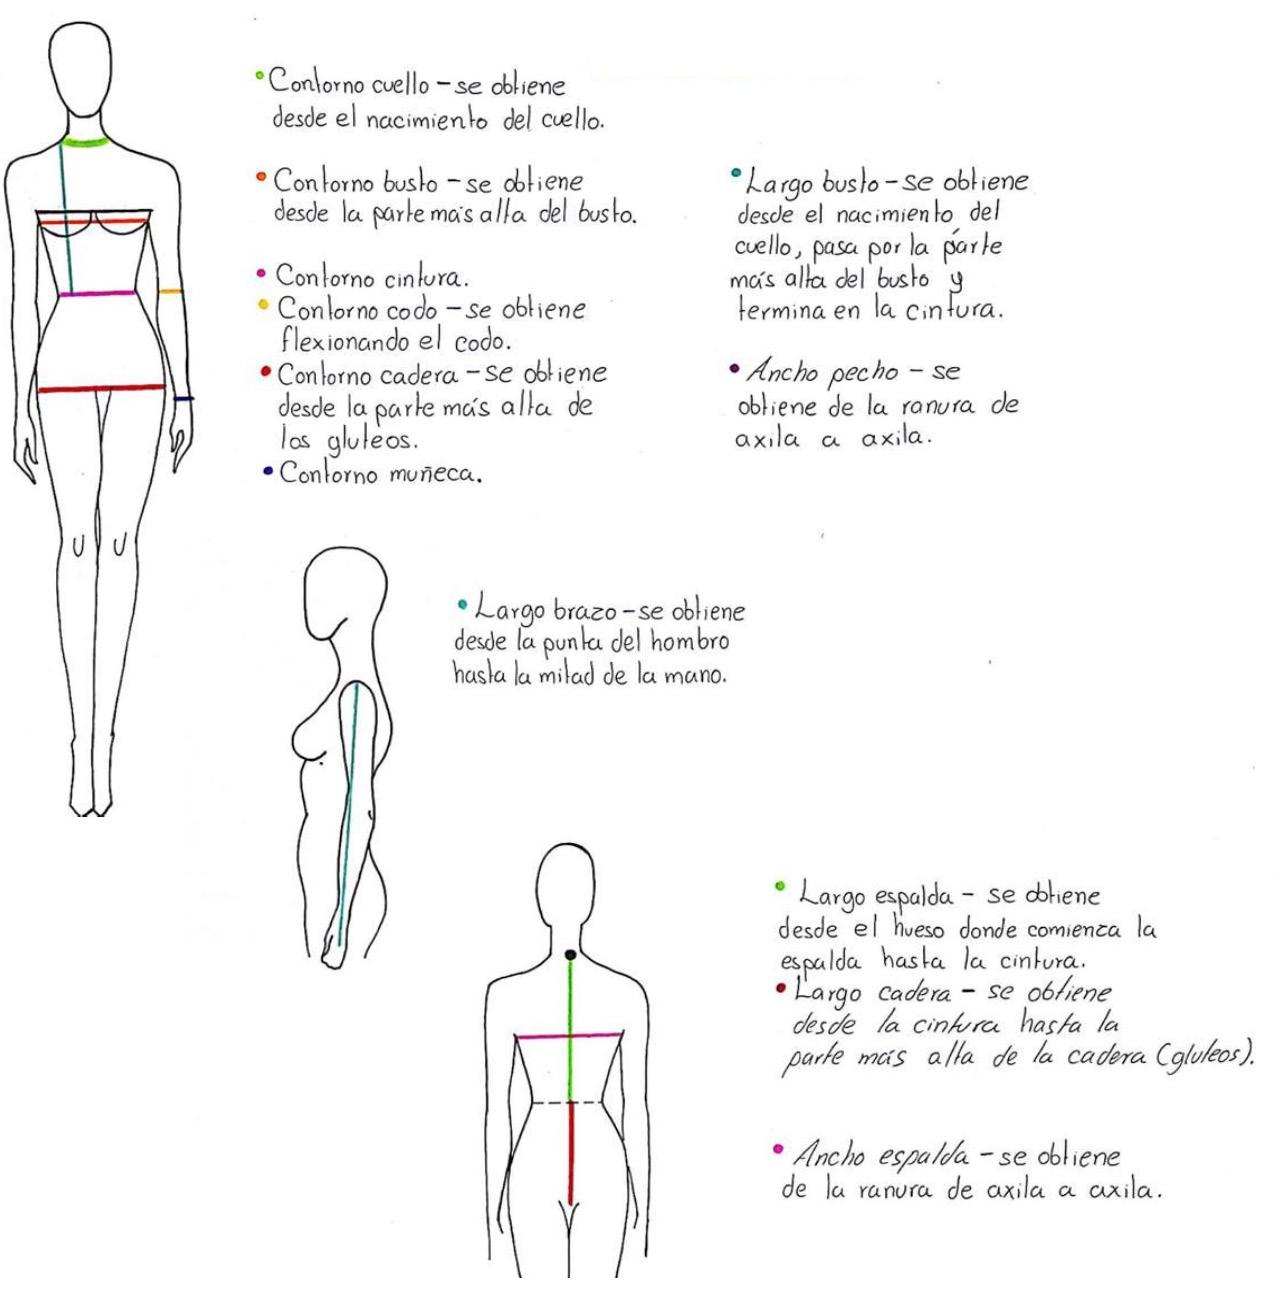 • Contorno cuello - se obtiene
desde el nacimiento del cuello.
• Contorno busto - se obtiene
desde la parte más alta del busto.
• Contorno cintura.
• Contorno codo - se obtiene
flexionando el codo.
• Contorno cadera - se obtiene
desde la parte más alta de
los gluteos.
• Contorno muñeca.
• Largo busto - se obtiene
desde el nacimiento del
cuello, pasa por la parte
más alta del busto y
termina en la cintura.
• Ancho pecho - se
obtiene de la ranura de
axila a axila.
• Largo brazo - se obtiene
desde la punta del hombro
hasta la mitad de la mano.
• Largo espalda - se obtiene
desde el hueso donde comienza la
espalda hasta la cintura.
• Largo cadera - se obtiene
desde la cintura hasta la
parte más alta de la cadera (gluteos).
• Ancho espalda - se obtiene
de la ranura de axila a axila.